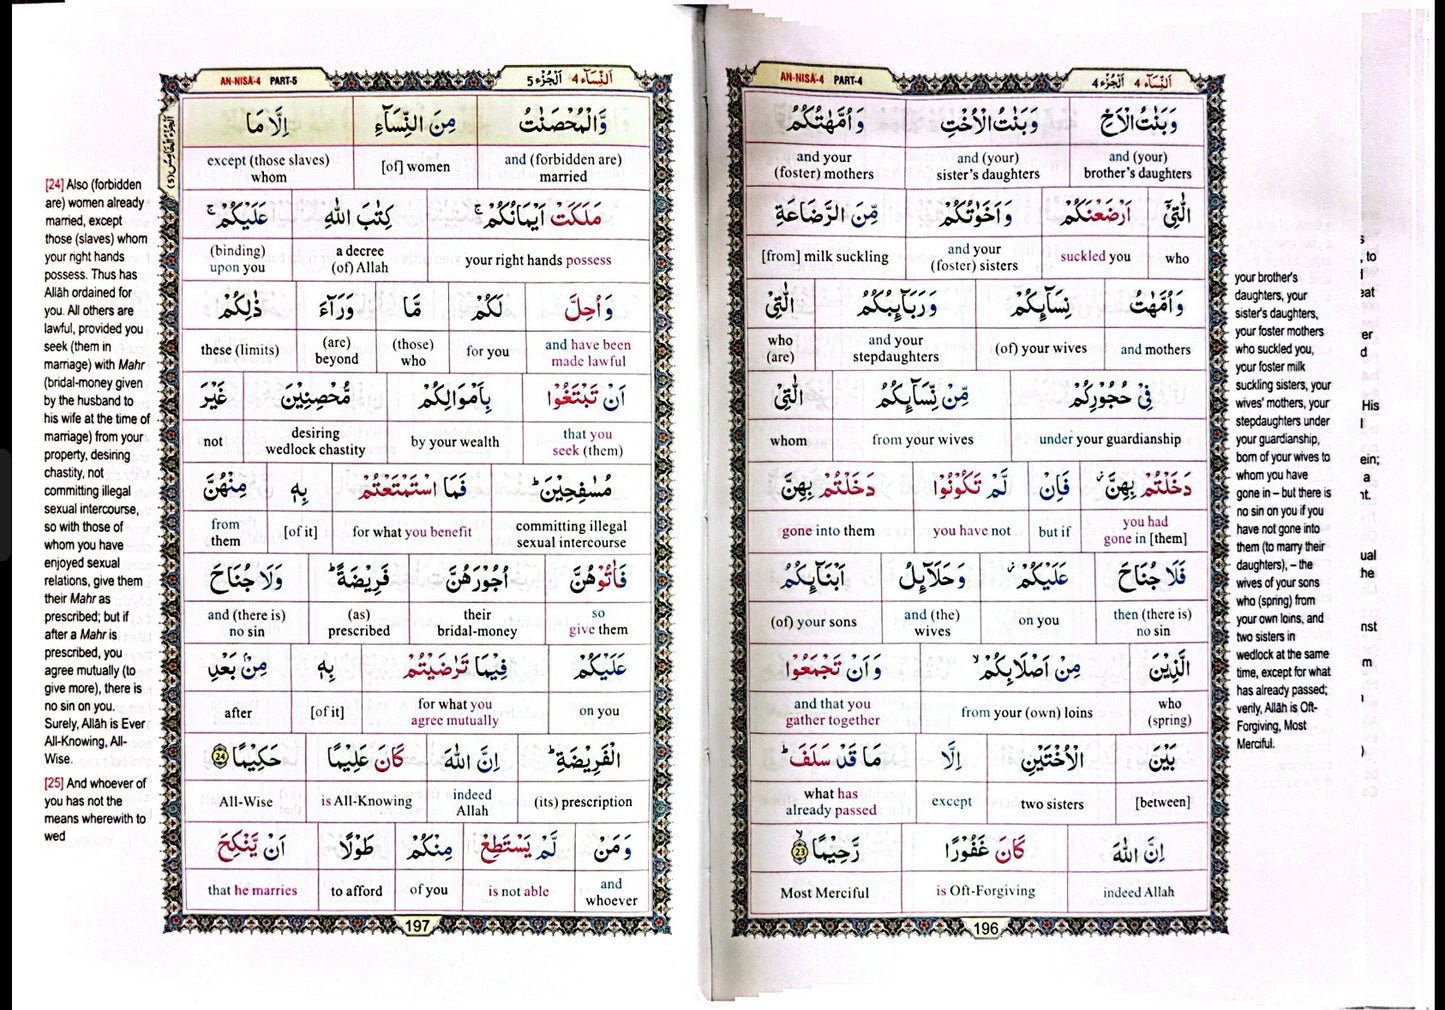 AN-NISĀ-4 PART-4 اَلنِّسَآء 4 اَلْجُزْء 4
وَبَنٰتُ الْاَخِ وَبَنٰتُ الْاُخْتِ وَاُمَّهٰتُكُمُ
and (your) brother's daughters and (your) sister's daughters and your (foster) mothers
الّٰتِيْۤ اَرْضَعْنَكُمْ وَاَخَوٰتُكُمْ مِّنَ الرَّضَاعَةِ
who suckled you and your (foster) sisters [from] milk suckling
وَاُمَّهٰتُ نِسَآىِٕكُمْ وَرَبَآىِٕبُكُمُ الّٰتِيْ
and mothers (of) your wives and your stepdaughters who (are)
فِيْ حُجُوْرِكُمْ مِّنْ نِّسَآىِٕكُمُ الّٰتِيْ
under your guardianship from your wives whom
دَخَلْتُمْ بِهِنَّ فَاِنْ لَّمْ تَكُوْنُوْا دَخَلْتُمْ بِهِنَّ
you had gone in [them] but if you have not gone into them
فَلَا جُنَاحَ عَلَيْكُمْ وَحَلَآىِٕلُ اَبْنَآىِٕكُمُ
then (there is) no sin on you and (the) wives (of) your sons
الَّذِيْنَ مِنْ اَصْلَابِكُمْ وَاَنْ تَجْمَعُوْا
who (spring) from your (own) loins and that you gather together
بَيْنَ الْاُخْتَيْنِ اِلَّا مَا قَدْ سَلَفَ
[between] two sisters except what has already passed
اِنَّ اللّٰهَ كَانَ غَفُوْرًا رَّحِيْمًا 23
indeed Allah is Oft-Forgiving Most Merciful
196
your brother's
daughters, your
sister's daughters,
your foster mothers
who suckled you,
your foster milk
suckling sisters, your
wives' mothers, your
stepdaughters under
your guardianship,
born of your wives to
whom you have
gone in – but there is
no sin on you if you
have not gone into
them (to marry their
daughters), – the
wives of your sons
who (spring) from
your own loins, and
two sisters in
wedlock at the same
time, except for what
has already passed;
verily, Allāh is Oft-
Forgiving, Most
Merciful.
AN-NISĀ-4 PART-5 اَلنِّسَآء 4 اَلْجُزْء 5
وَّالْمُحْصَنٰتُ مِنَ النِّسَآءِ اِلَّا مَا
and (forbidden are) married [of] women except (those slaves) whom
مَلَكَتْ اَيْمَانُكُمْ كِتٰبَ اللّٰهِ عَلَيْكُمْ
your right hands possess a decree (of) Allah (binding) upon you
وَاُحِلَّ لَكُمْ مَّا وَرَآءَ ذٰلِكُمْ
and have been made lawful for you (those) who (are) beyond these (limits)
اَنْ تَبْتَغُوْا بِاَمْوَالِكُمْ مُّحْصِنِيْنَ غَيْرَ
that you seek (them) by your wealth desiring wedlock chastity not
مُسٰفِحِيْنَ فَمَا اسْتَمْتَعْتُمْ بِهٖ مِنْهُنَّ
committing illegal sexual intercourse for what you benefit [of it] from them
فَاٰتُوْهُنَّ اُجُوْرَهُنَّ فَرِيْضَةً وَلَا جُنَاحَ
so give them their bridal-money (as) prescribed and (there is) no sin
عَلَيْكُمْ فِيْمَا تَرٰضَيْتُمْ بِهٖ مِنْۢ بَعْدِ
on you for what you agree mutually [of it] after
الْفَرِيْضَةِ اِنَّ اللّٰهَ كَانَ عَلِيْمًا حَكِيْمًا 24
(its) prescription indeed Allah is All-Knowing All-Wise
وَمَنْ لَّمْ يَسْتَطِعْ مِنْكُمْ طَوْلًا اَنْ يَّنْكِحَ
and whoever is not able of you to afford that he marries
197
[24] Also (forbidden
are) women already
married, except
those (slaves) whom
your right hands
possess. Thus has
Allāh ordained for
you. All others are
lawful, provided you
seek (them in
marriage) with Mahr
(bridal-money given
by the husband to
his wife at the time of
marriage) from your
property, desiring
chastity, not
committing illegal
sexual intercourse,
so with those of
whom you have
enjoyed sexual
relations, give them
their Mahr as
prescribed; but if
after a Mahr is
prescribed, you
agree mutually (to
give more), there is
no sin on you.
Surely, Allāh is Ever
All-Knowing, All-
Wise.
[25] And whoever of
you has not the
means wherewith to
wed